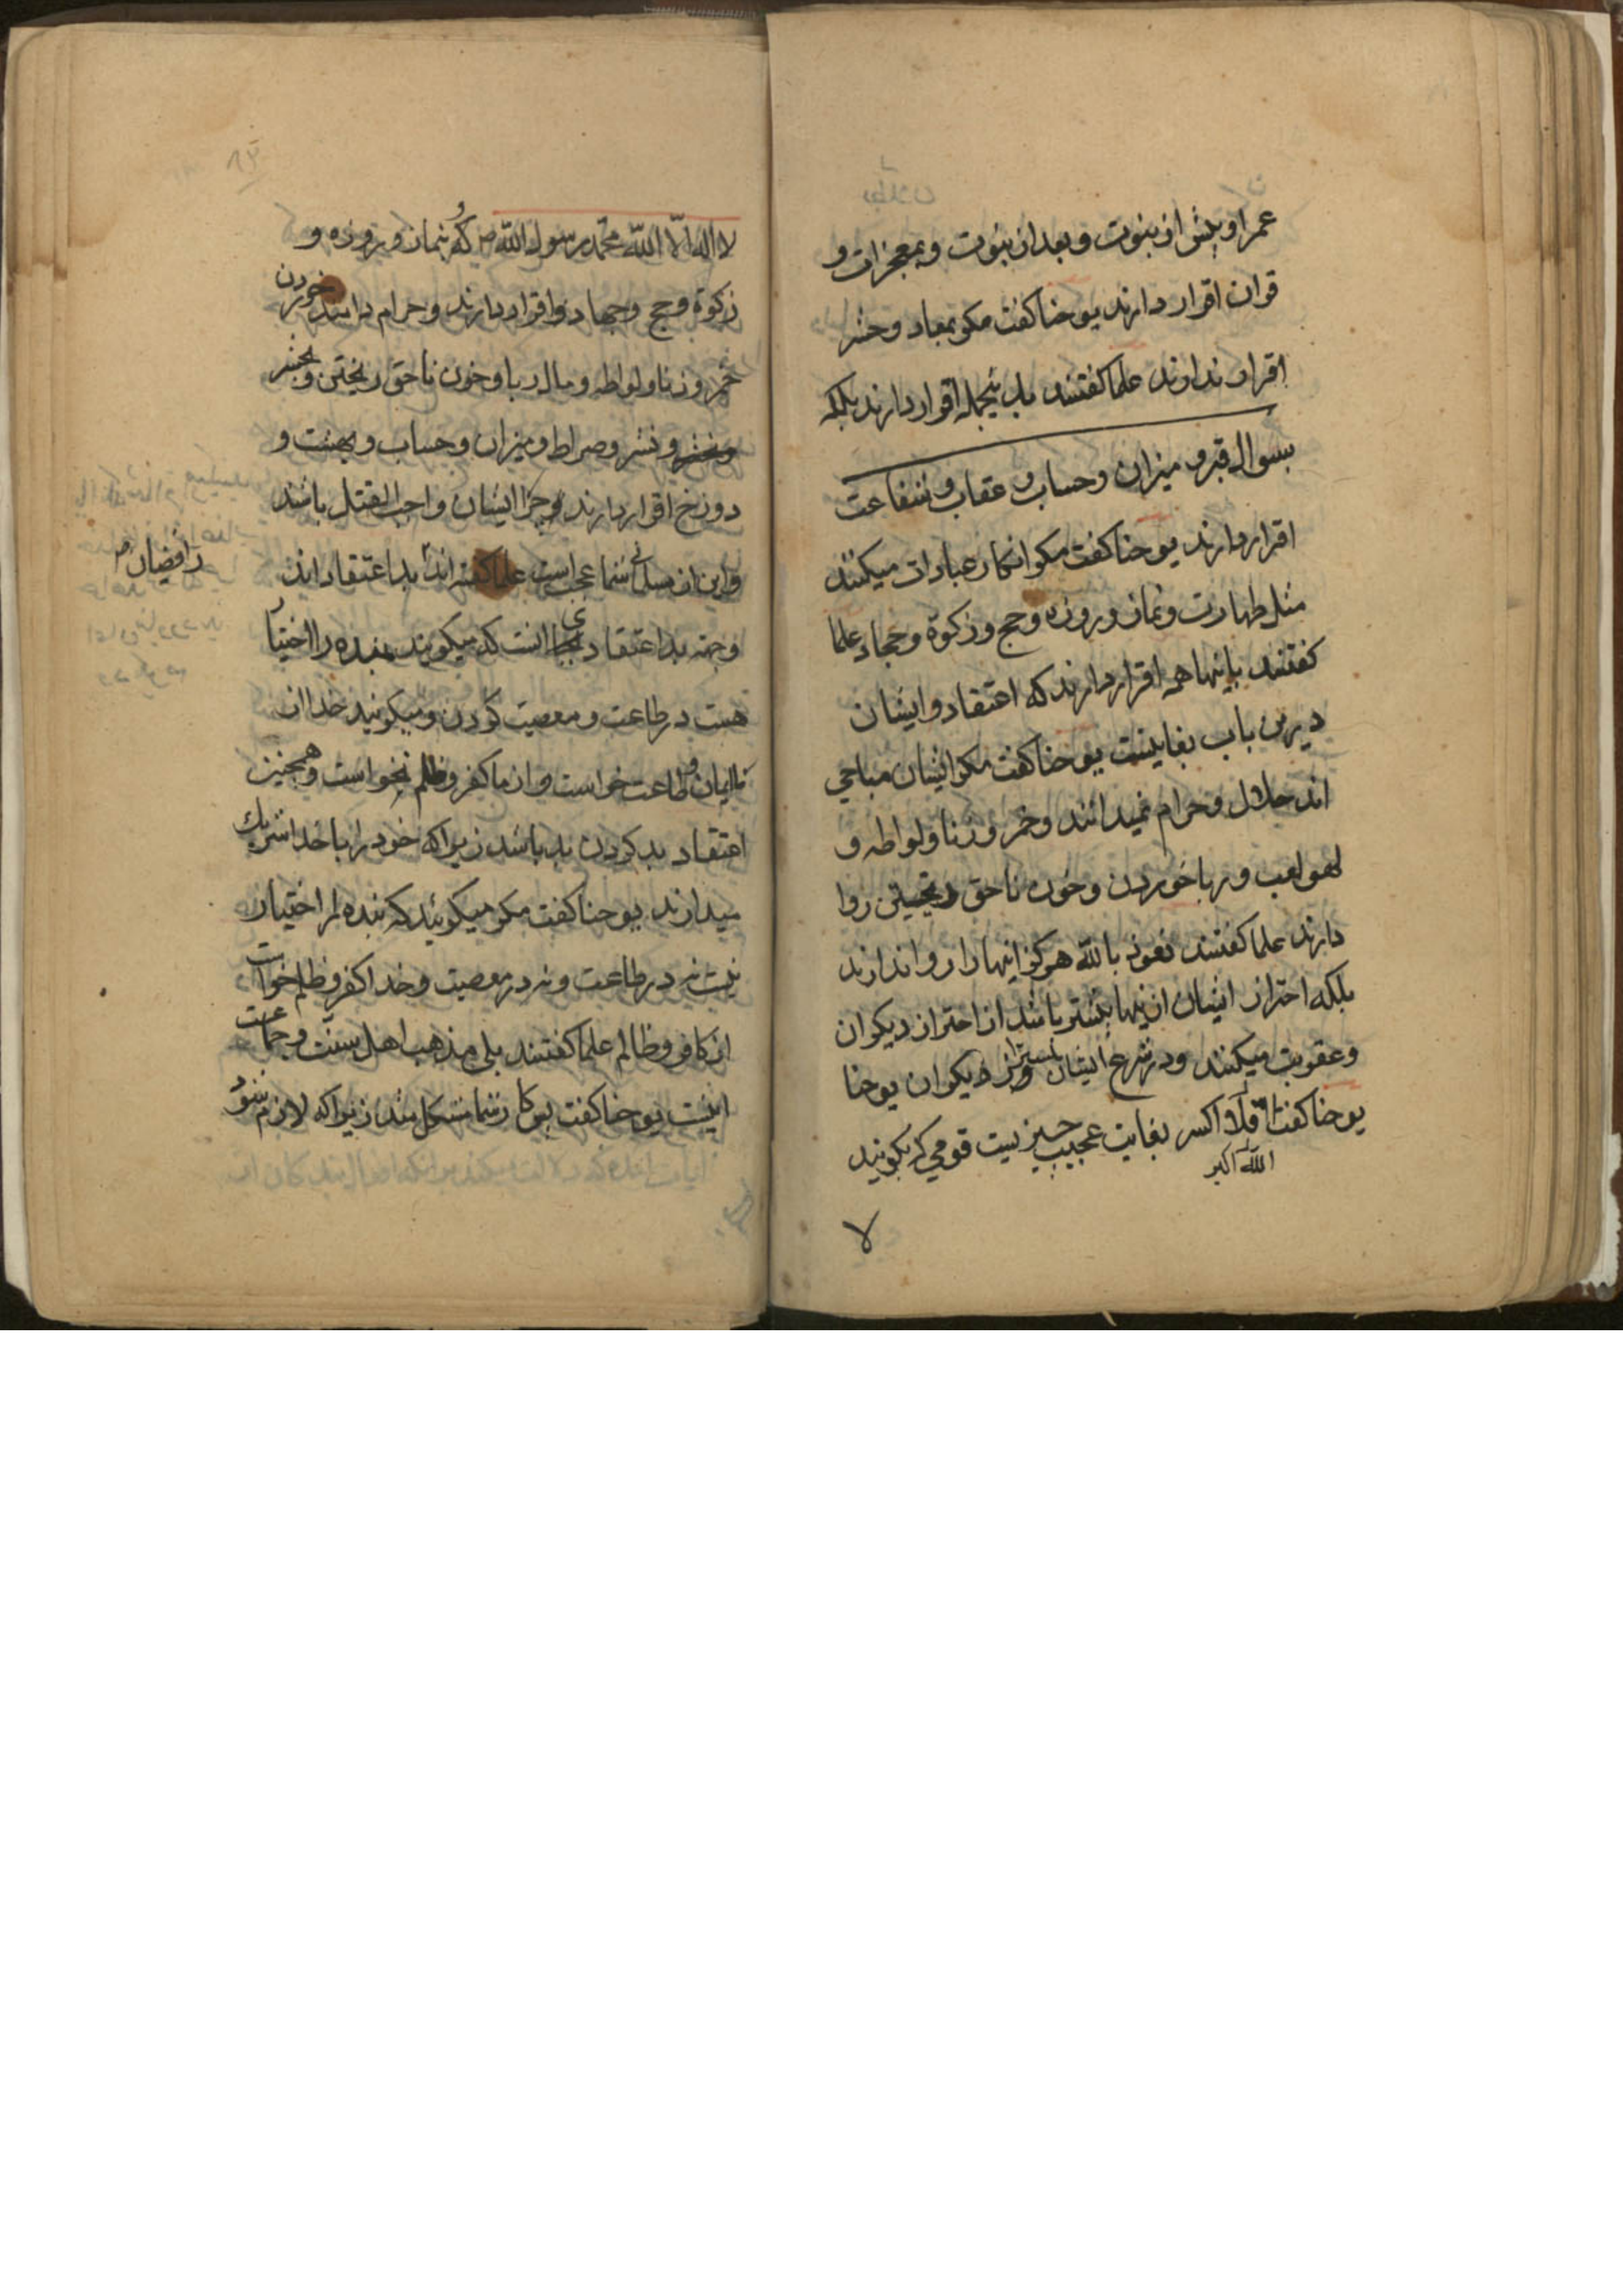 عمر او پیش از نبوت و بعد از نبوت و بمعجزات و
قران اقرار دارند یوحنا کفت مکر بمعاد و حشر
اقرار ندارند علما کفتند باینجمله اقرار دارند بلکه
بسوال قبر و میزان و حساب و عقاب و شفاعت
اقرار دارند یوحنا کفت مکر انکار عبادات میکنند
مثل طهارت و نماز و روزه و حج و زکوة و جهاد علما
کفتند باینها همه اقرار دارند که اعتقاد و ایشان
درین باب بغایتست یوحنا کفت مکر ایشان مباحی
اند حلال و حرام نمیدانند و خمر و زنا و لواطه و
لهو لعب و ربا خوردن و خون ناحق ریختن روا
دارند علما کفتند نعوذ بالله هرکز اینهارا روا ندارند
بلکه احتراز ایشان ازینها بیشتر باشد از احتراز دیکران
و عقوبت میکنند و در شرع ایشان بیشتر از دیکران یوحنا
یوحنا کفت الله اکبر بغایت عجیب چیزیست قومی که بکویند
الله اکبر
لا
۸۳
لا اله الا الله محمد رسول الله ص که بنماز و روزه و
زکوة و حج و جهاد و اقرار دارند و حرام دانند خوردن
خمر و زنا و لواطه و مال ربا و خون ناحق ریختن و بحشر
و نشر و صراط و میزان و حساب و بهشت و
دوزخ اقرار دارند چرا ایشان واجب القتل باشند
و این از مسلمانی شما عجب است علما کفتند بد اعتقاد اند
رافضیان
وجه بد اعتقادی انست که میکویند بنده را اختیار
هست در طاعت و معصیت کردن و میکویند خدا از
ما ایمان و طاعت خواست و از ما کفر و ظلم نخواست و همچنین
اعتقاد بد کردن بد باشد زیرا که خود را با خدا شریک
میدارند یوحنا کفت مکر میکوئید که بنده را اختیار
نیست نه در طاعت و نه در معصیت و خدا کفر و ظلم خواست
از کافر و ظالم علما کفتند بلی مذهب اهل سنت و جماعت
اینست یوحنا کفت پس کار شما مشکل شد زیرا که لازم شود